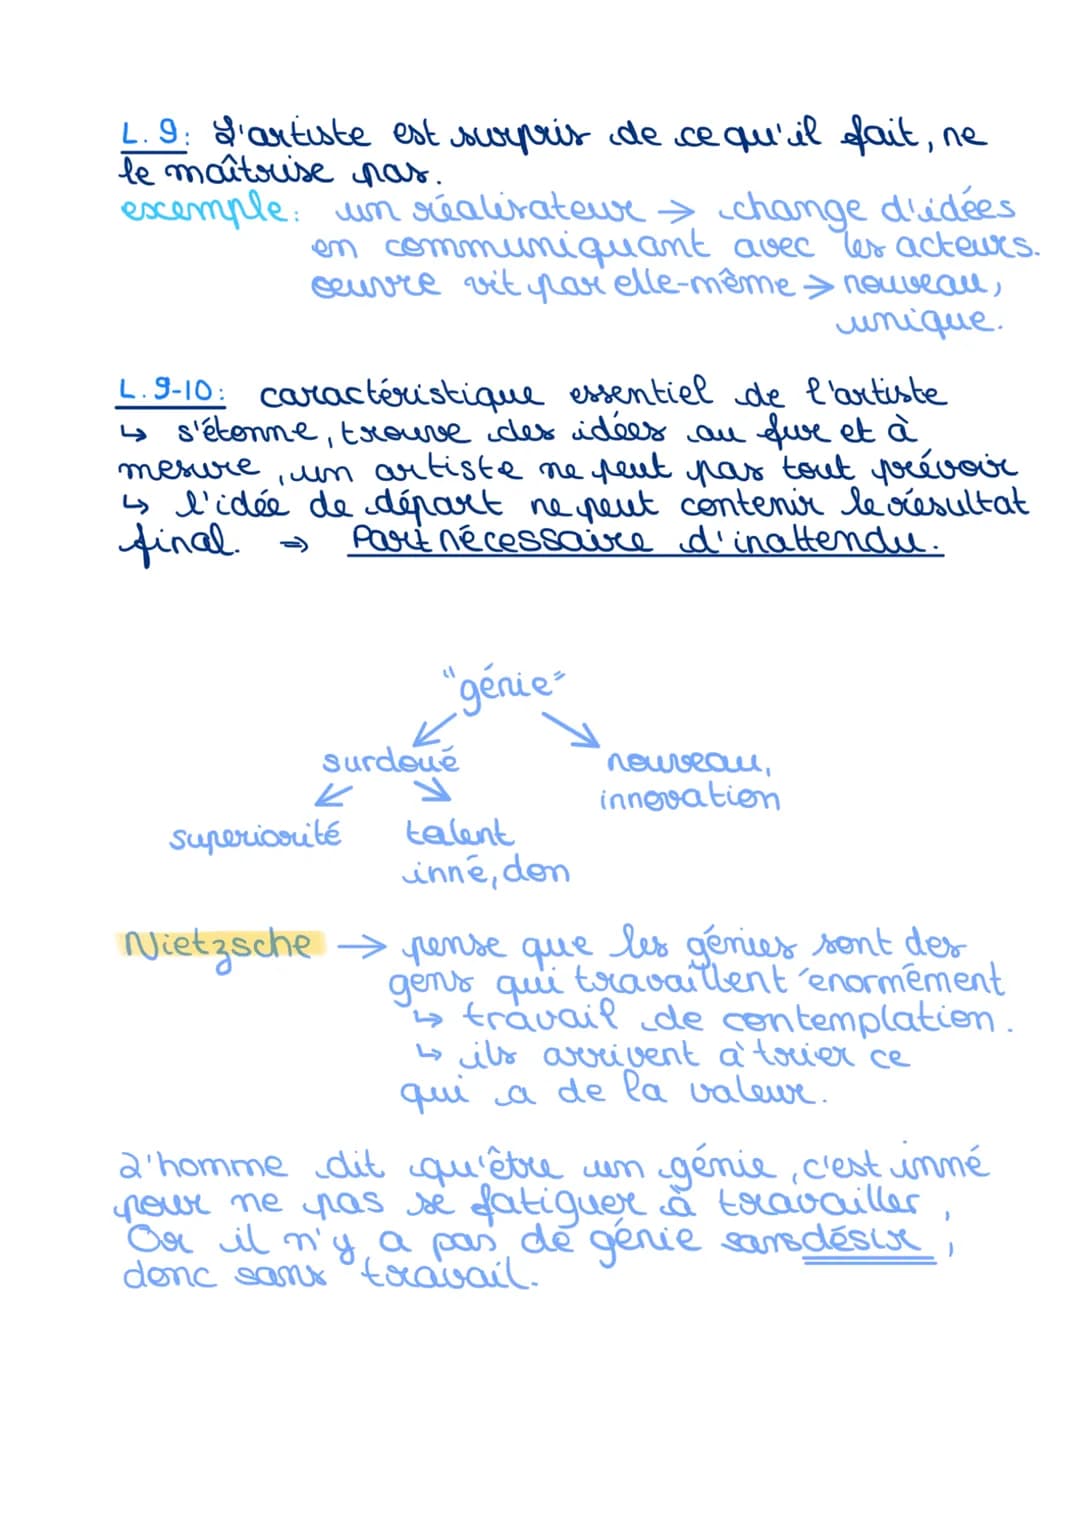 L. 9: L'artiste est surpris de ce qu'il fait, ne
le maîtrise pas.
exemple: un réalisateur → change d'idées
en communiquant avec les acteurs.
œuvre vit par elle-même → nouveau,
unique.
L. 9-10: caractéristique essentiel de l'artiste
↳ s'étonne, trouve des idées au fur et à
mesure, un artiste ne peut pas tout prévoir
↳ l'idée de départ ne peut contenir le résultat
final. ⇒ Part nécessaire d'inattendu.
"génie"
surdoué
nouveau,
innovation
superiorité
talent
inné, don
Nietzsche → pense que les génies sont des
gens qui travaillent énormément
↳ travail de contemplation.
↳ ils arrivent à trier ce
qui a de la valeur.
L'homme dit qu'être un génie, c'est inné
pour ne pas se fatiguer à travailler,
Or il n'y a pas de génie sans désir,
donc sans travail.